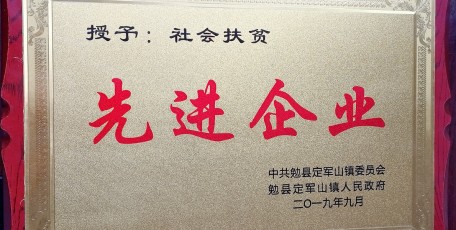 授予：社会扶贫
先进企业
中共勉县定军山镇委员会
勉县定军山镇人民政府
二〇一九年九月